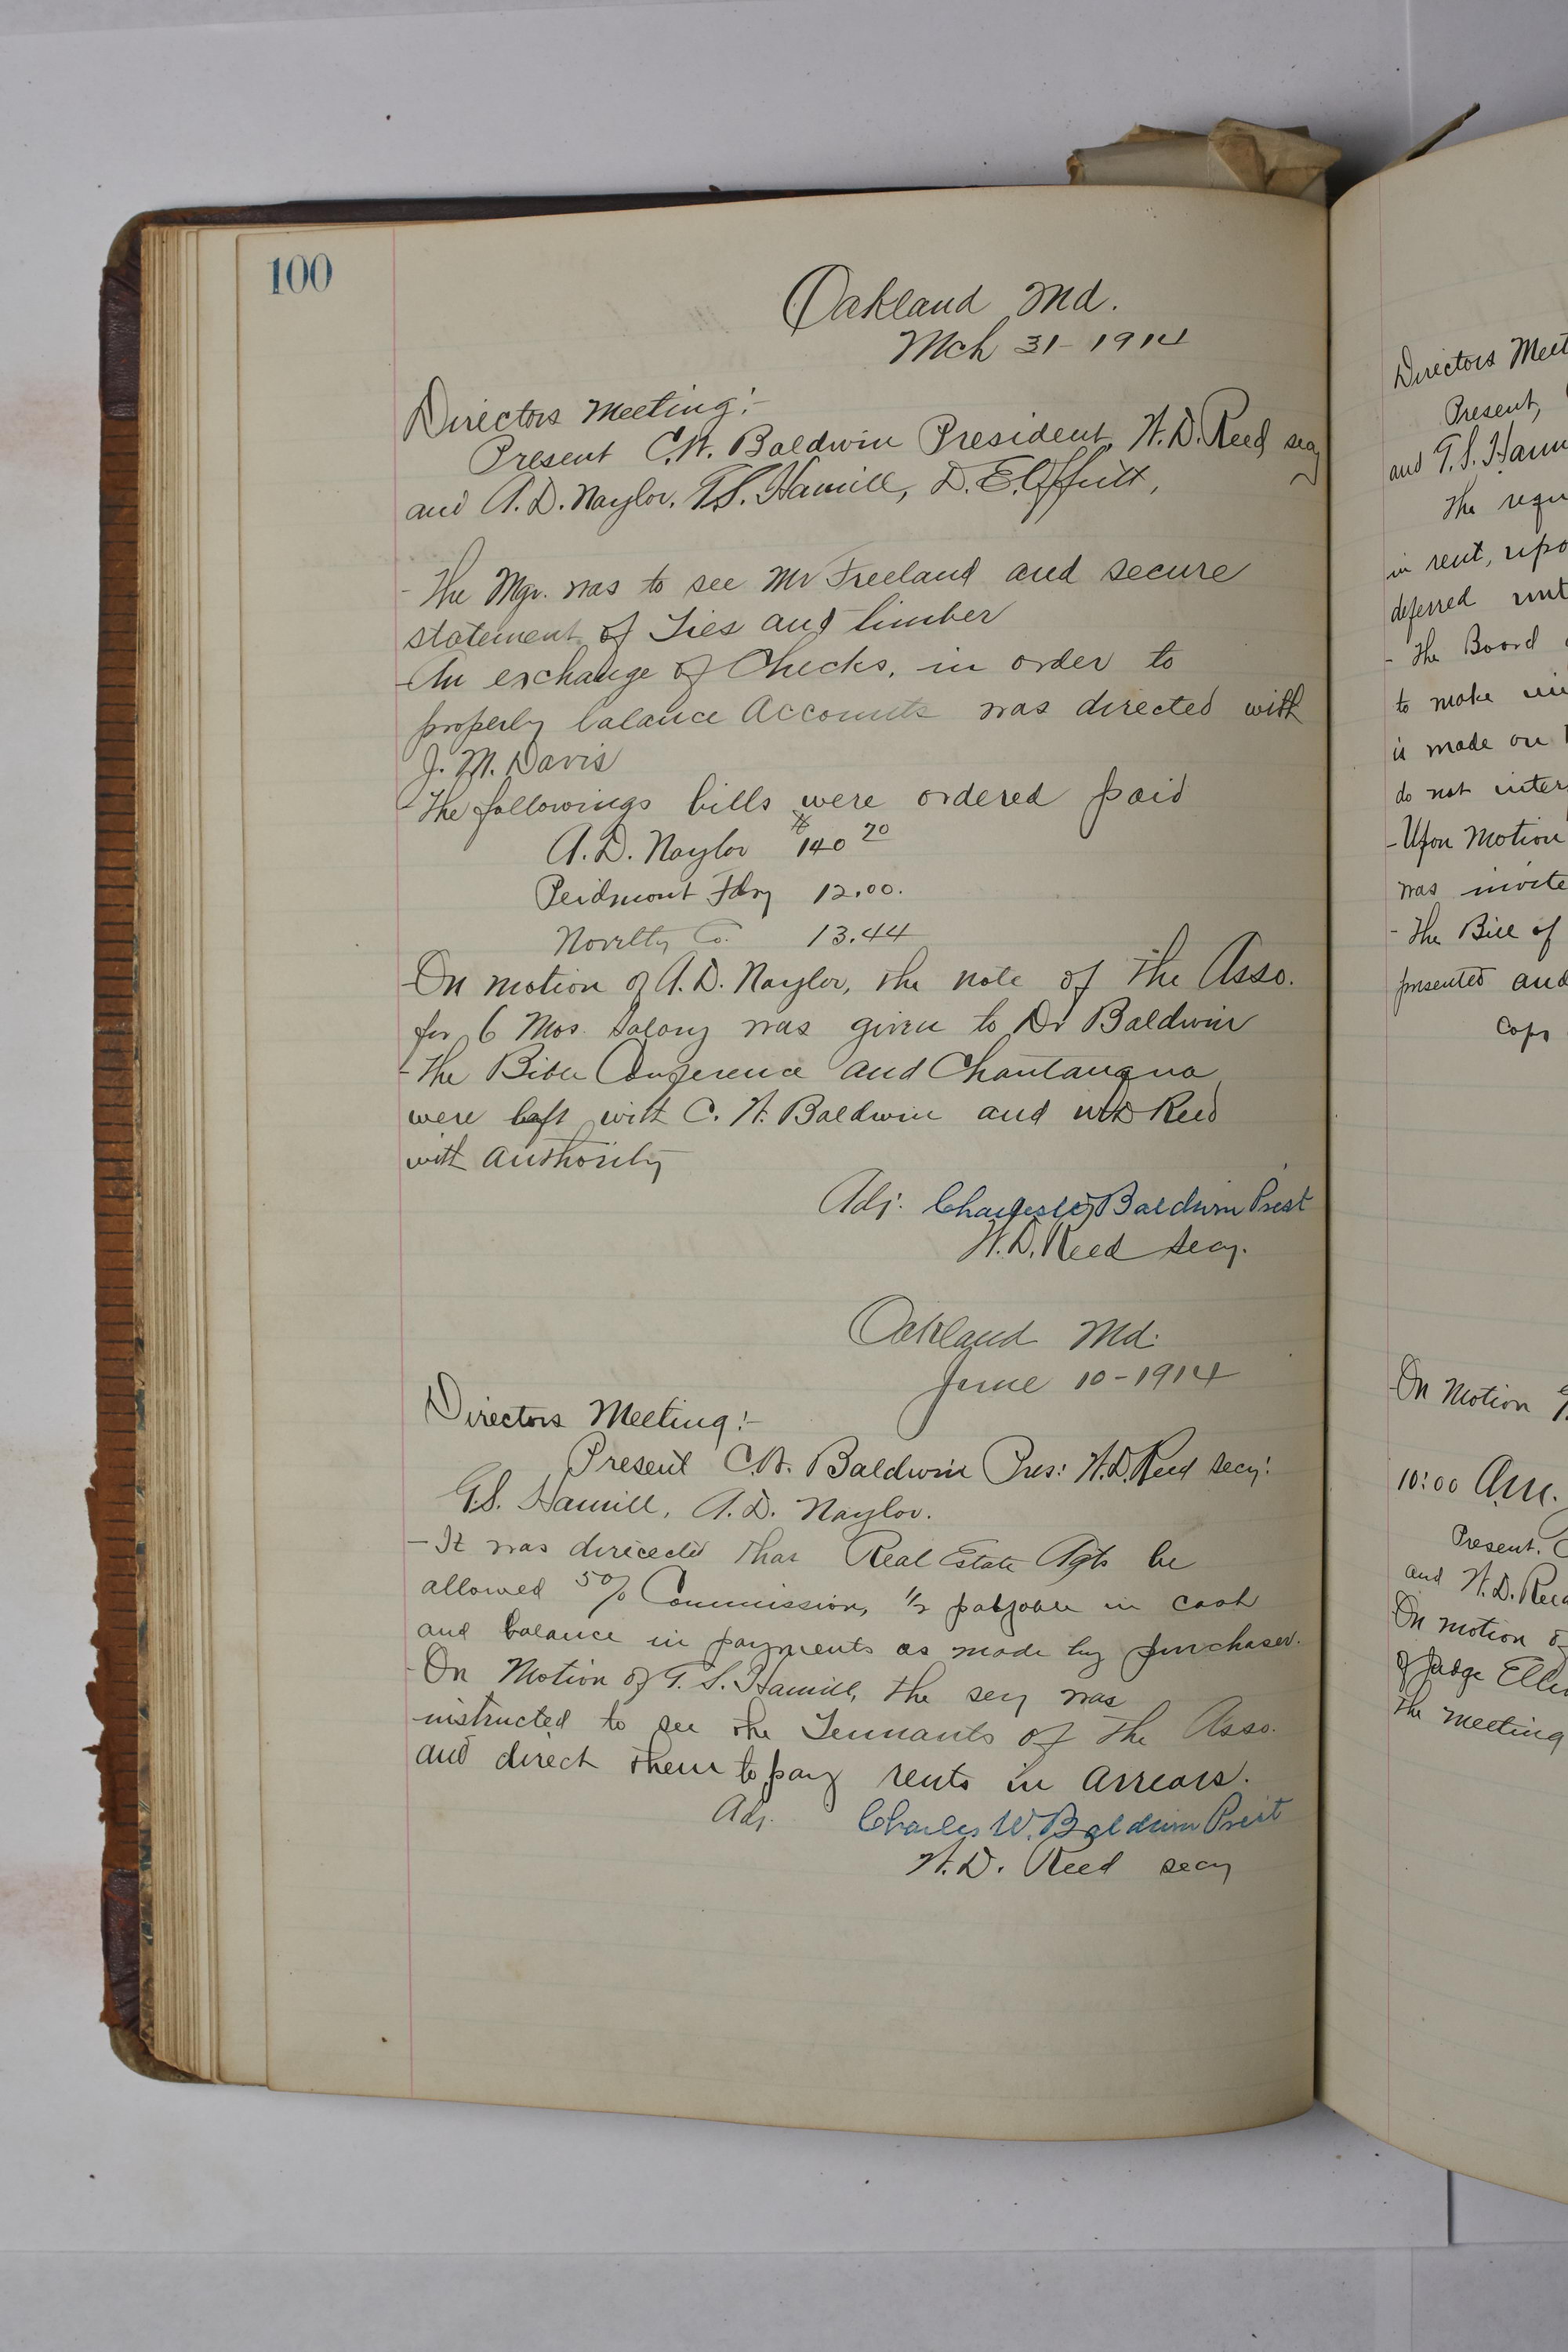 100
Oakland Md.
Mch 31-1914
Directors Meeting:-
Present C.W. Baldwin President, W.D. Reed secy
and A.D. Naylor, G.S. Hamill, D.E. Offutt,
- The Mgr. was to see Mr Freeland and secure
statement of Ties and timber
- An exchange of Checks, in order to
properly balance Accounts was directed with
J. M. Davis
- The followings bills were ordered paid
A. D. Naylor $140 70
Peidmont Fdry 12.00.
Novelty Co. 13.44
- On motion of A. D. Naylor, the note of the Asso.
for 6 Mos. Salary was given to Dr Baldwin
- The Bible Conference and Chautauqua
were left with C. W. Baldwin and WD Reed
with authority
Adj. Charles W Baldwin Prest
W. D. Reed Secy.
Oakland Md.
June 10-1914
Directors Meeting:-
Present C.W. Baldwin Pres: W.D. Reed secy:
G.S. Hamill, A. D. Naylor.
- It was direcected that Real Estate Agts be
allowed 5% Commission, 1/2 payable in cash
and balance in payments as made by purchaser.
- On Motion of G. S. Hamill, the secy was
instructed to see the Tennants of the Asso.
and direct them to pay rents in arrears.
Adj. Charles W. Baldwin Prest
W. D. Reed secy
Directors Meet
Present,
and G.S. Ham
The requ
in rent, repo
deferred unt
- The Board
to make
is made on
do not inter
- Upon Motion
was invite
- The Bill of
presented and
Copy
On Motion
10:00 Am.
Present. C
and W.D. Reed
On motion of
of Judge
The meeting